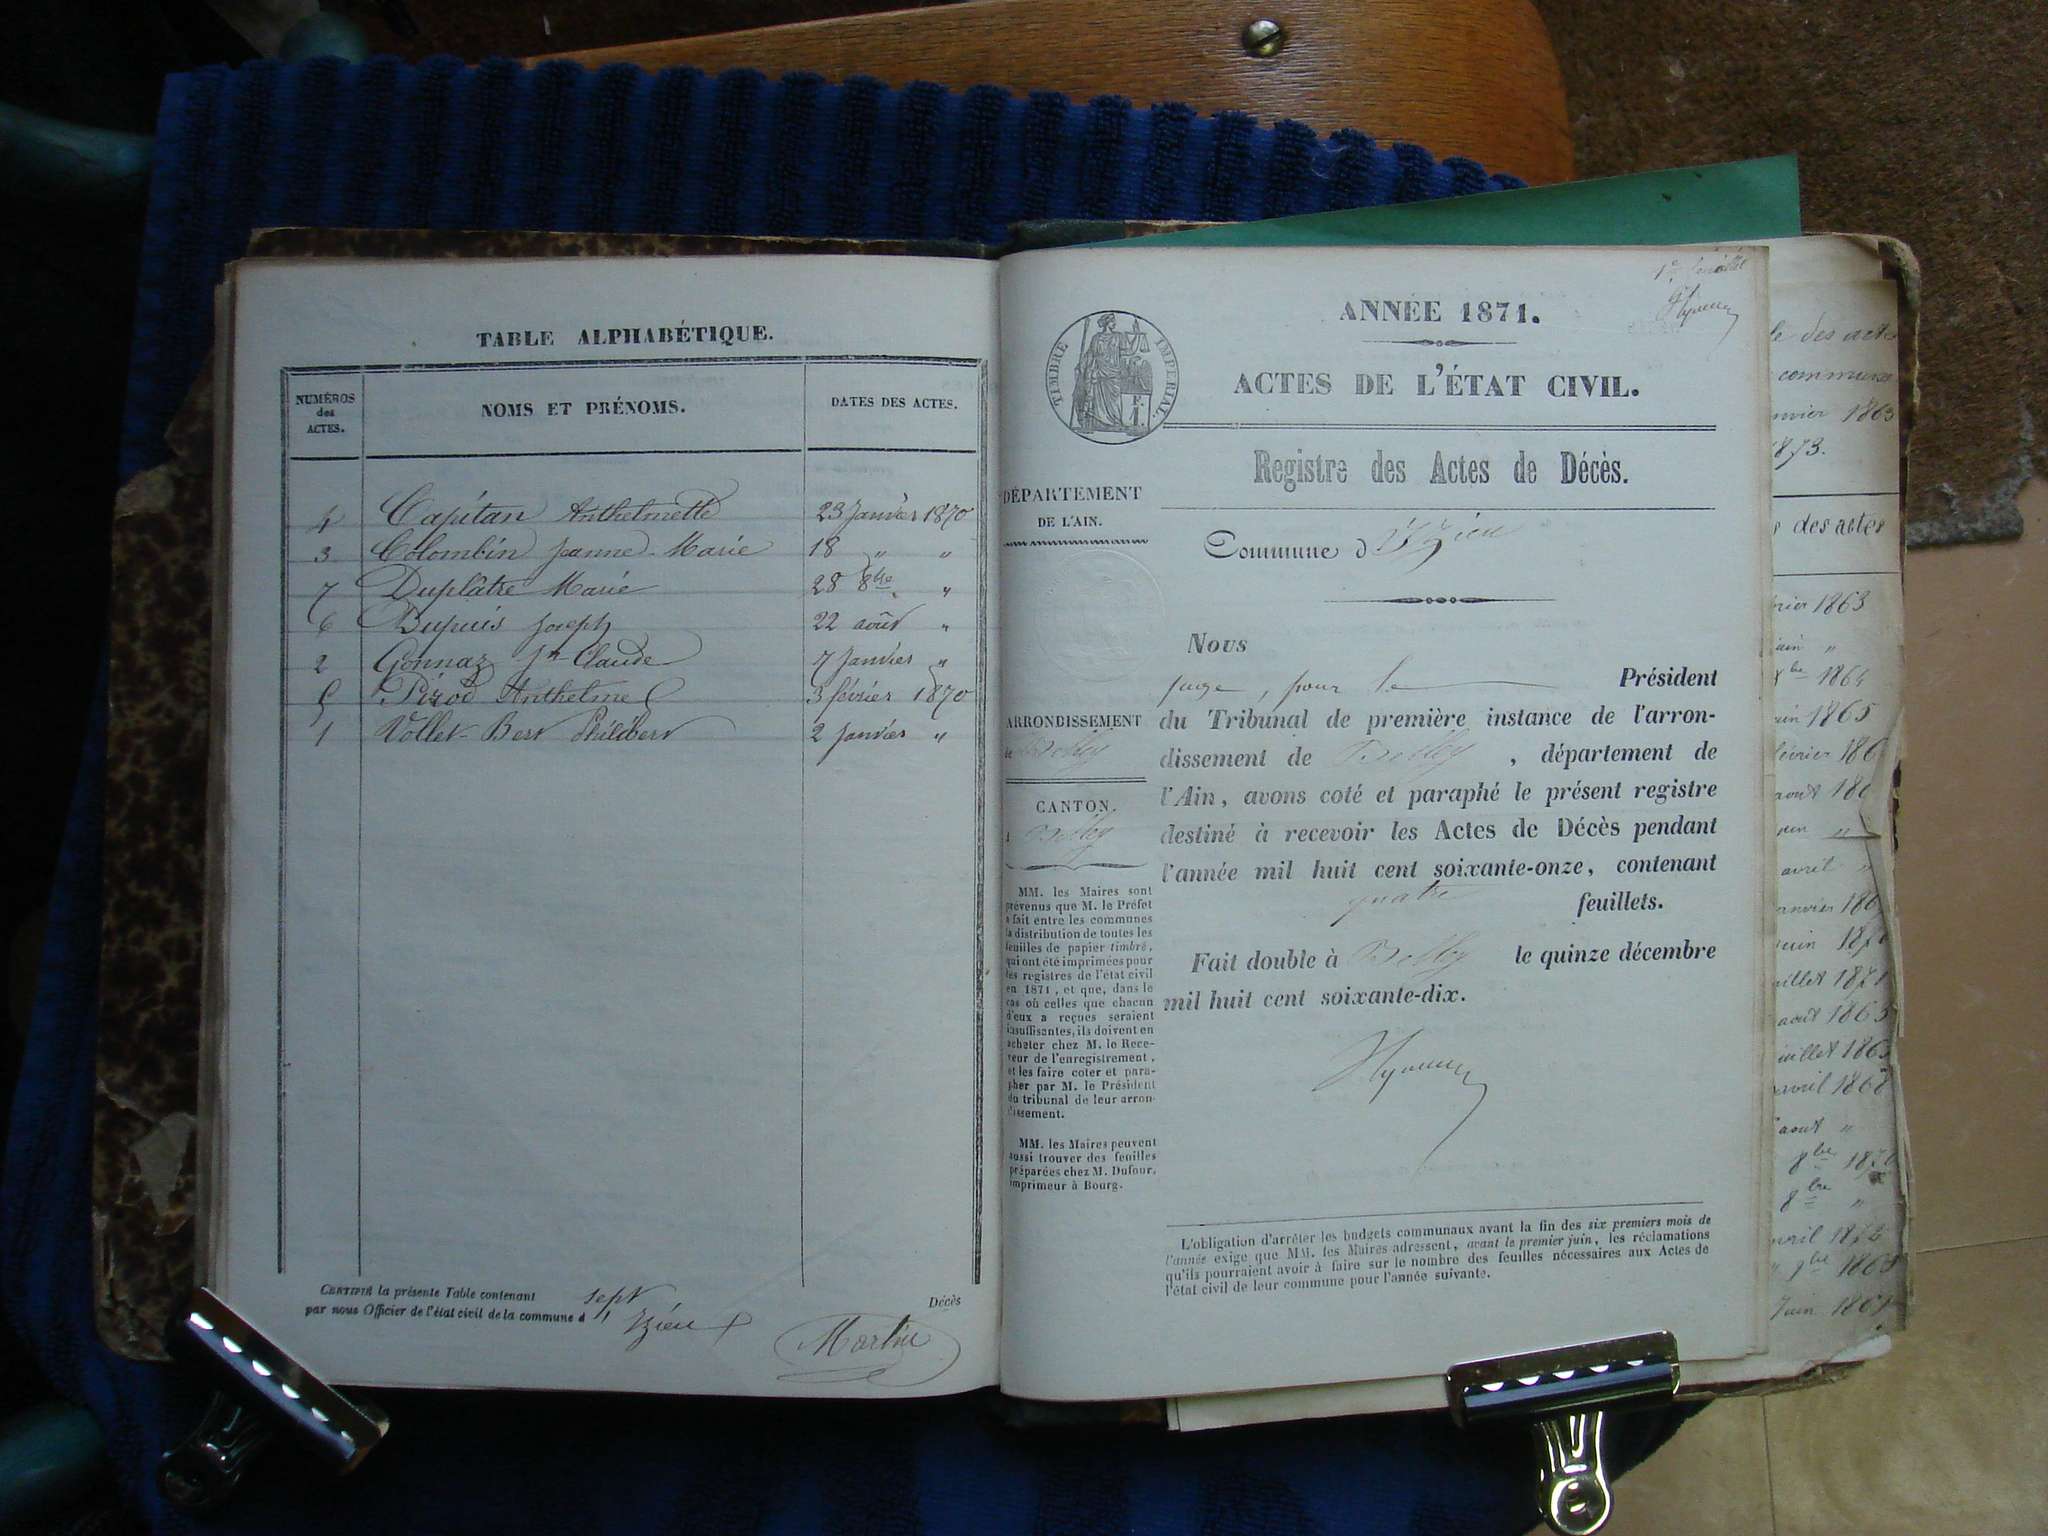 TABLE ALPHABÉTIQUE.
NUMÉROS
des
ACTES.
NOMS ET PRÉNOMS.
DATES DES ACTES.
4 Capitan Anthelmette 23 Janvier 1870
3 Colombin Jeanne-Marie 18 " "
7 Duplâtre Marie 28 8bre "
6 Dupuis Joseph 22 août "
2 Gonnaz Jn-Claude 7 Janvier "
5 Pérod Anthelme 3 février 1870
1 Vollet-Bert Philibert 2 Janvier "
CERTIFIÉ la présente Table contenant sept
par nous Officier de l'état civil de la commune d'Izieu
Décès
Martin
1er feuillet
TIMBRE IMPERIAL.
ANNÉE 1871.
ACTES DE L'ÉTAT CIVIL.
Registre des Actes de Décès.
Commune d'Izieu
DÉPARTEMENT
DE L'AIN.
ARRONDISSEMENT
de Belley
CANTON.
d Belley
MM. les Maires sont
prévenus que M. le Préfet
a fait entre les communes
la distribution de toutes les
feuilles de papier timbré,
qui ont été imprimées pour
les registres de l'état civil
en 1871, et que, dans le
cas où celles que chacun
d'eux a reçues seraient
insuffisantes, ils doivent en
acheter chez M. le Rece-
veur de l'enregistrement,
et les faire coter et para-
pher par M. le Président
du tribunal de leur arron-
dissement.
MM. les Maires peuvent
aussi trouver des feuilles
préparées chez M. Dufour,
imprimeur à Bourg.
Nous
juge, pour le Président
du Tribunal de première instance de l'arron-
dissement de Belley, département de
l'Ain, avons coté et paraphé le présent registre
destiné à recevoir les Actes de Décès pendant
l'année mil huit cent soixante-onze, contenant
quatre feuillets.
Fait double à Belley le quinze décembre
mil huit cent soixante-dix.
L'obligation d'arrêter les budgets communaux avant la fin des six premiers mois de
l'année exige que MM. les Maires adressent, avant le premier juin, les réclamations
qu'ils pourraient avoir à faire sur le nombre des feuilles nécessaires aux Actes de
l'état civil de leur commune pour l'année suivante.
des actes
commune
1863
1873.
des actes
1863
"
1864
1865
août
avril "
1871
août 1865
1863
avril 1868
août "
8bre 1870
8bre "
avril 1872
9bre 1863
Juin